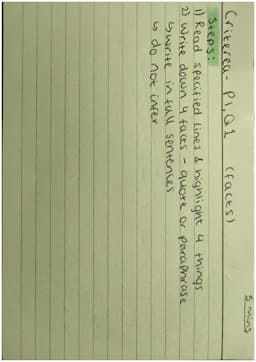 5 mins
Criterea - P1, Q1 (facts)
Steps:
1) Read specified lines & highlight 4 things
2) Write down 4 facts - quote or paraphrase
↳ write in full sentences
↳ do not infer